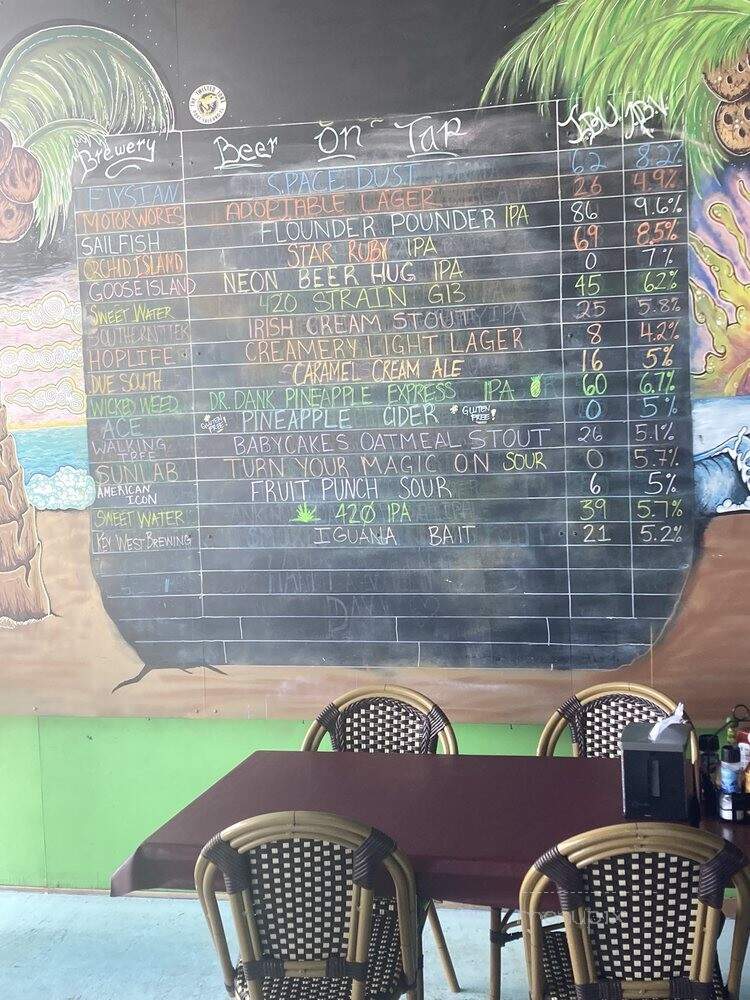 THE TWISTED TUNA
Brewery Beer On Tap IBU ABV
ELYSIAN SPACE DUST 62 8.2%
MOTORWORKS ADOPTABLE LAGER 26 4.9%
SAILFISH FLOUNDER POUNDER IPA 86 9.6%
ORCHID ISLAND STAR RUBY IPA 69 8.5%
GOOSE ISLAND NEON BEER HUG IPA 0 7%
SWEET WATER 420 STRAIN G13 45 62%
SOUTHERN TIER IRISH CREAM STOUT 25 5.8%
HOPLIFE CREAMERY LIGHT LAGER 8 4.2%
DUE SOUTH CARAMEL CREAM ALE 16 5%
WICKED WEED DR. DANK PINEAPPLE EXPRESS IPA 60 6.7%
ACE *GLUTEN FREE! PINEAPPLE CIDER *GLUTEN FREE! 0 5%
WALKING TREE BABYCAKES OATMEAL STOUT 26 5.1%
SUNLAB TURN YOUR MAGIC ON SOUR 0 5.7%
AMERICAN ICON FRUIT PUNCH SOUR 6 5%
SWEET WATER 420 IPA 39 5.7%
KEY WEST BREWING IGUANA BAIT 21 5.2%
menupix